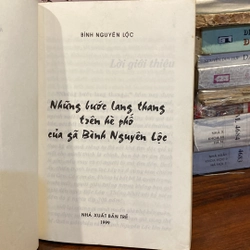 BÌNH NGUYÊN LỘC
Lời giới thiệu
Những bước lang thang
trên hè phố
của gã Bình Nguyên Lộc
NHÀ XUẤT BẢN TRẺ
1999